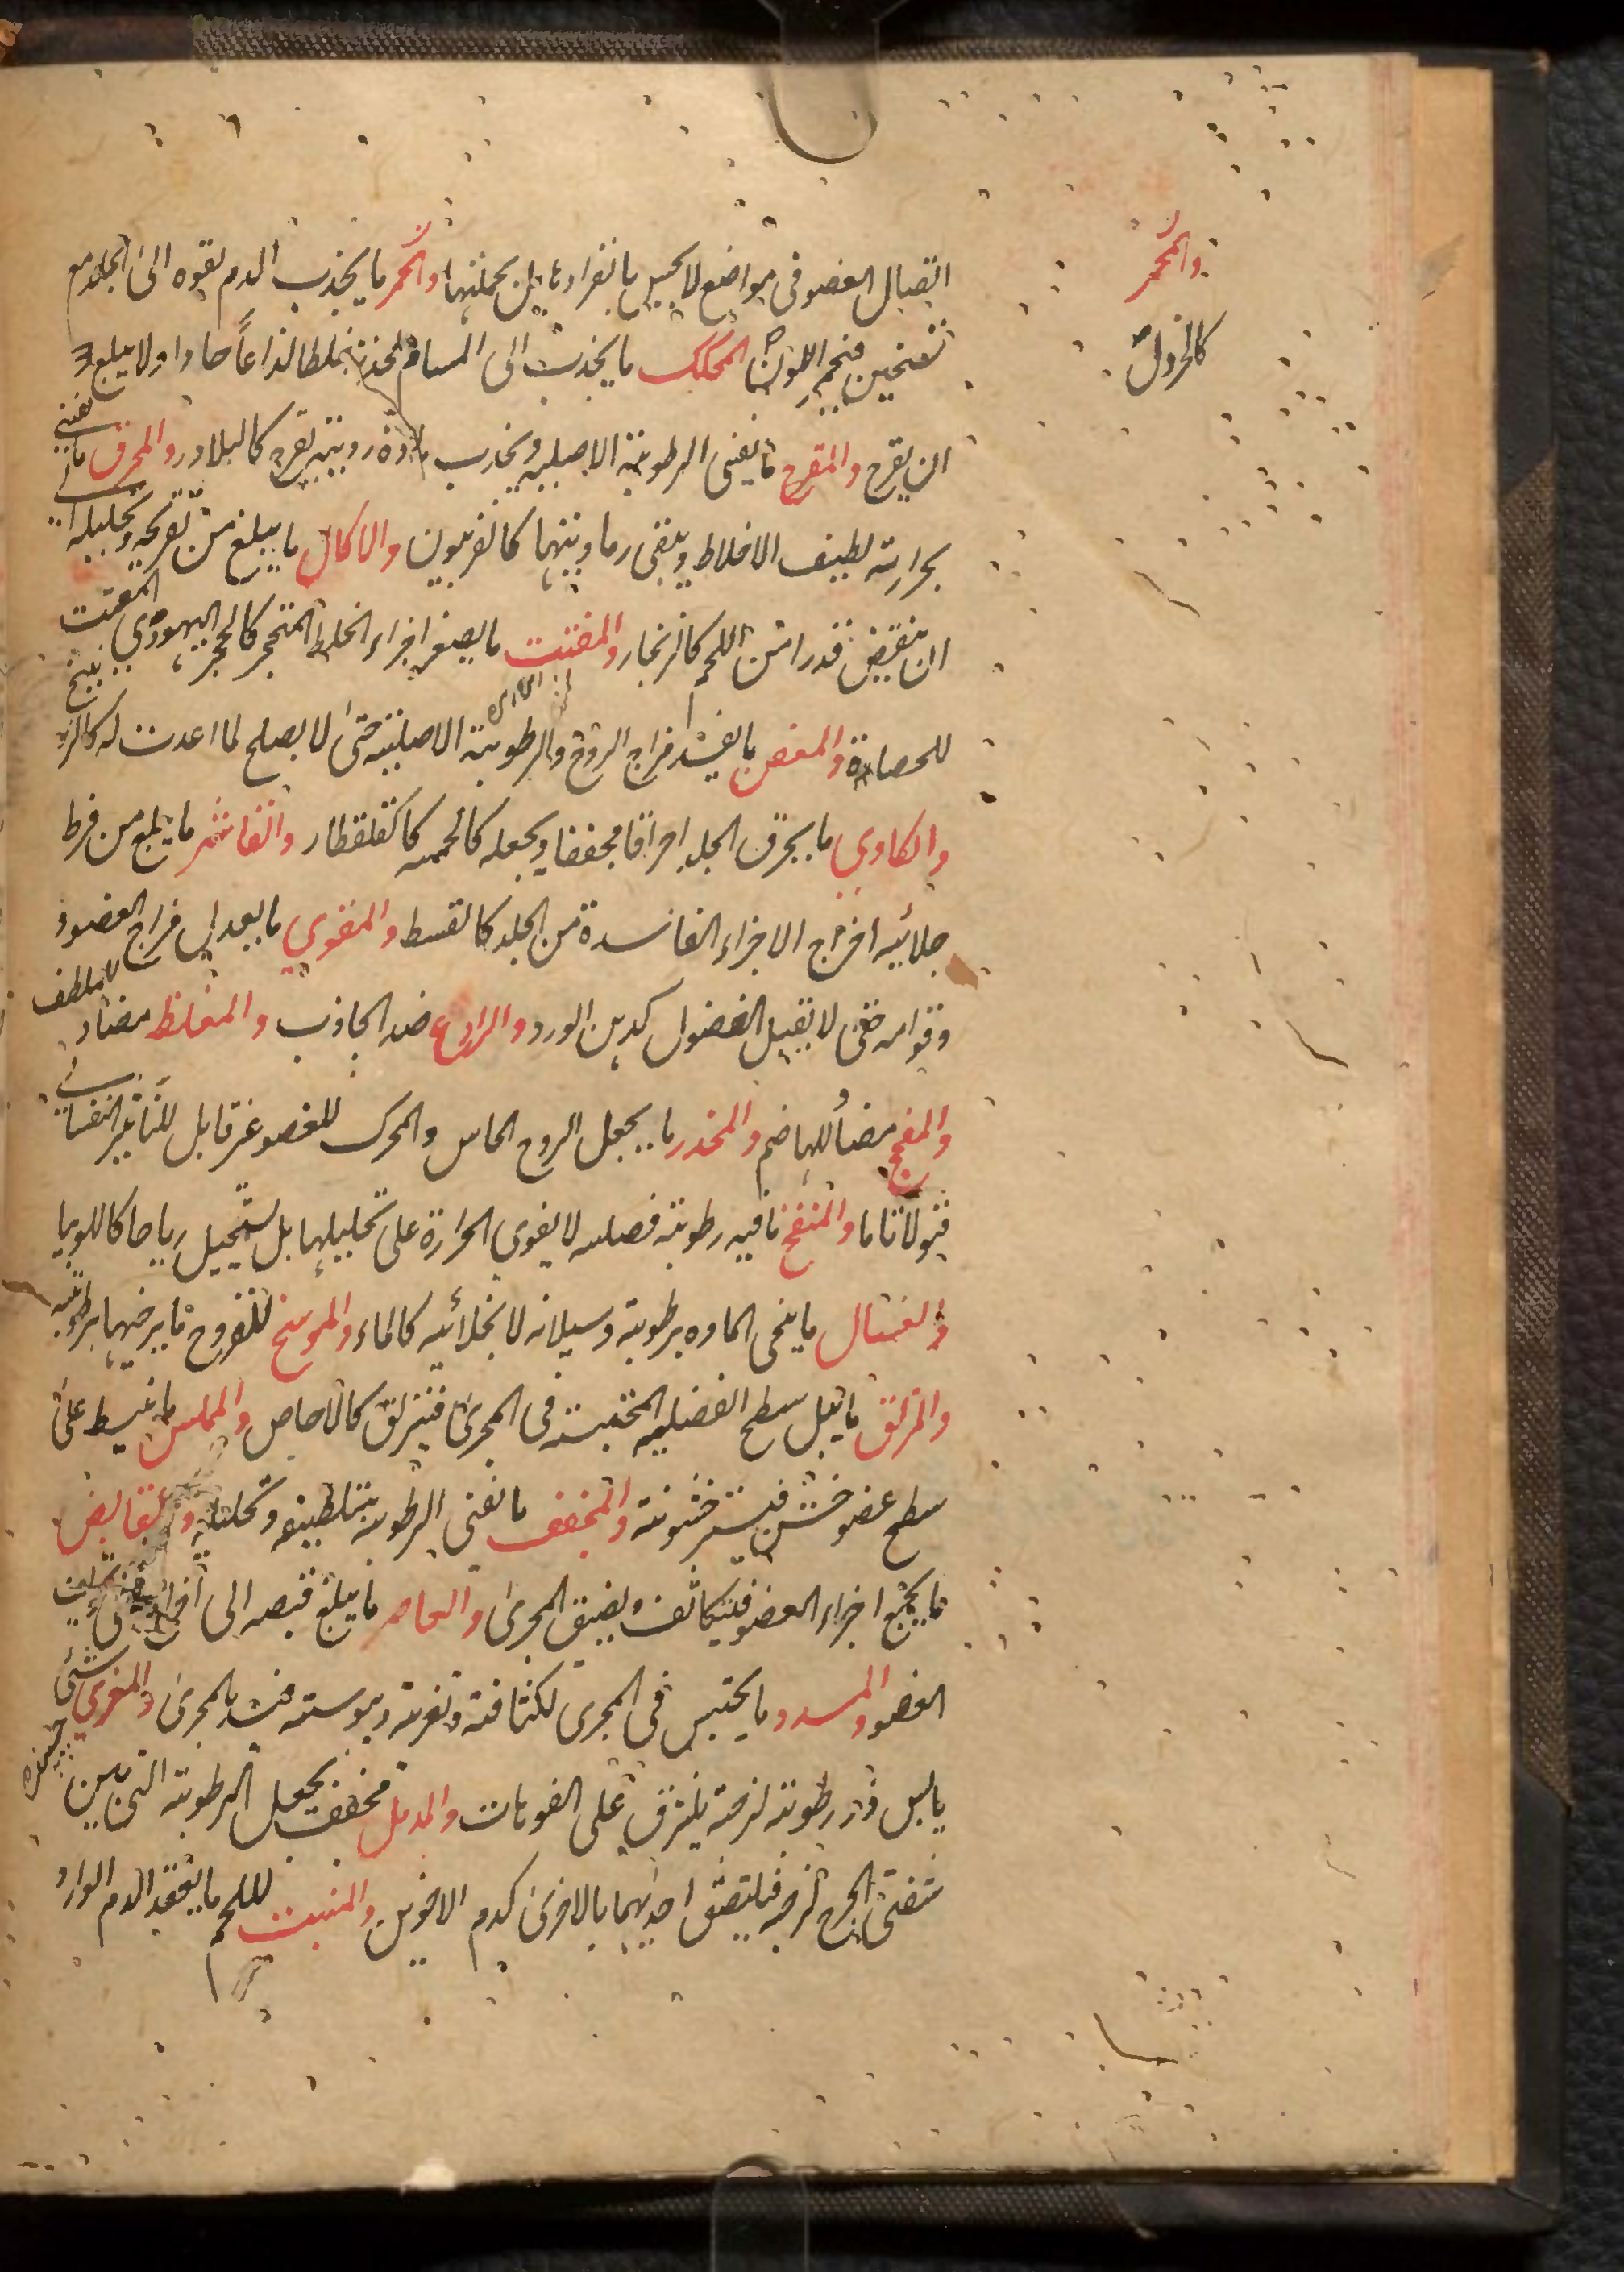 والمحمر
كالخردل
اتصال العضو في مواضع لا يحس بانفرادها بل بجملتها والمحمر ما يجذب الدم بقوه الى الجلد مع
تسخين فيحمر اللون المحكك ما يجذب الى المسام لحدته خلطا لذاعاً حادا ولا يبلغ
ان يقرح والمقرح ما يفنى الرطوبة الاصلية ويجذب مادة ردية يقرح كالبلادر والمحرق ما يفنى
بحرارته لطيف الاخلاط ويبقى رماديتها كالفربيون والاكال ما يبلغ من تقريحه وتحليله
ان ينقص قدرا من اللحم كالزنجار والمفتت ما يصغر اجزاء الخلط المتحجر كالحجر اليهودي المفتت
للحصاة والمعفن ما يفسد مزاج الروح والرطوبة الاصلية حتى لا يصلح لما اعدت له كالزرنيخ
والكاوي ما يحرق الجلد احراقا مجففا ويجعله كالحممه كالقلقطار والقاشر ما يبلغ من فرط
جلائيه اخراج الاجزاء الفاسدة من الجلد كالقسط والمقوي ما يعدل مزاج العضو و
وقوامه حتى لا يقبل الفضول كدهن الورد والرادع ضد الجاذب والمغلظ مضاد للملطف
والمفجج مضاد للهاضم والمخدر ما يجعل الروح الحاس والمحرك للعضو غير قابل للتاثير النفساني
قبولا تاما والمنفخ ما فيه رطوبة فضليه لا يقوى الحرارة على تحليلها بل يستحيل رياحا كاللوبيا
والغسال ما ينحى الماده برطوبة وسيلانه لا بجلائيه كالماء والموسخ للقروح ما يرخيها برطوبته
والمزلق ما يبل سطح الفضلية المحتبسة في المجرى فينزلق كالاجاص والمملس ما ينبسط على
سطح عضو خشن فيستر خشونته والمجفف ما يفنى الرطوبة بتلطيفه وتحليله والقابض
ما يجمع اجزاء العضو فيتكاثف ويضيق المجرى والعاصر ما يبلغ قبضه الى اخراج ما في تجويف
العضو والمسدد ما يحتبس في المجرى لكثافته وتغريته ويبوسته فيسد المجرى والمغري شئ
يابس ذو رطوبة لزجة يلتزق على الفوهات والمدمل مجفف يجعل الرطوبة التي بين
شفتى الجرح لزجه فيلتصق احديهما بالاخرى كدم الاخوين والمنبت للحم ما يعقد الدم الوارد